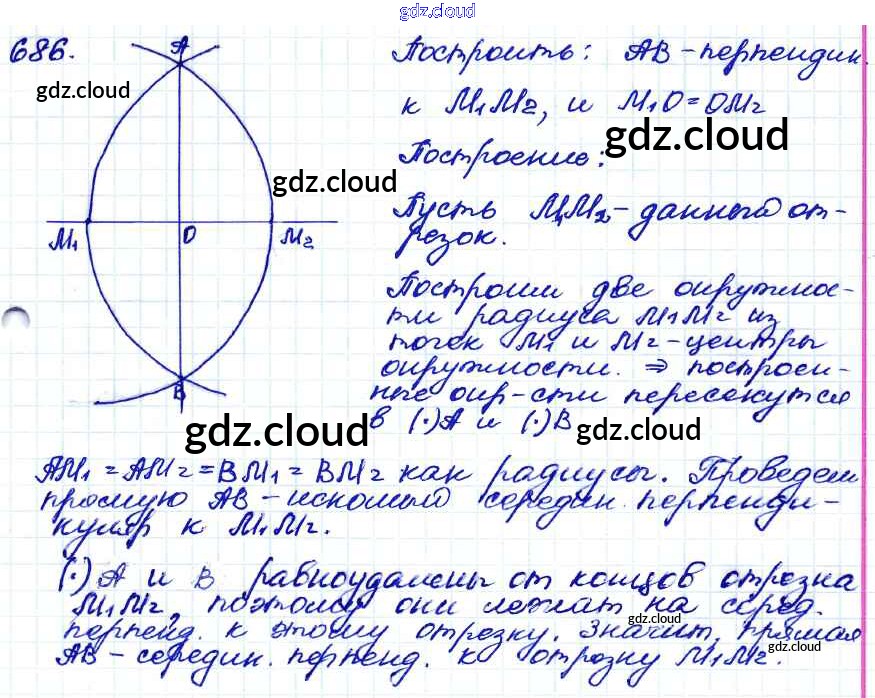 gdz.cloud
686.
A
gdz.cloud
gdz.cloud
M₁ O M₂
B
gdz.cloud
Построить: AB – перпендик.
к M₁M₂, и M₁O = OM₂
gdz.cloud
Построение:
Пусть M₁M₂ – данный от-
резок.
Построим две окружнос-
ти радиуса M₁M₂ из
точек M₁ и M₂ – центры
окружности. ⇒ построен-
ные окр-сти пересекутся
в (·)A и (·)B
gdz.cloud
AM₁ = AM₂ = BM₁ = BM₂ как радиусы. Проведем
прямую AB – искомый середин. перпенди-
куляр к M₁M₂.
(·) A и B равноудалены от концов отрезка
M₁M₂, поэтому они лежат на серед.
gdz.cloud
перпенд. к этому отрезку. Значит, прямая
AB – середин. перпенд. к отрезку M₁M₂.
gdz.cloud